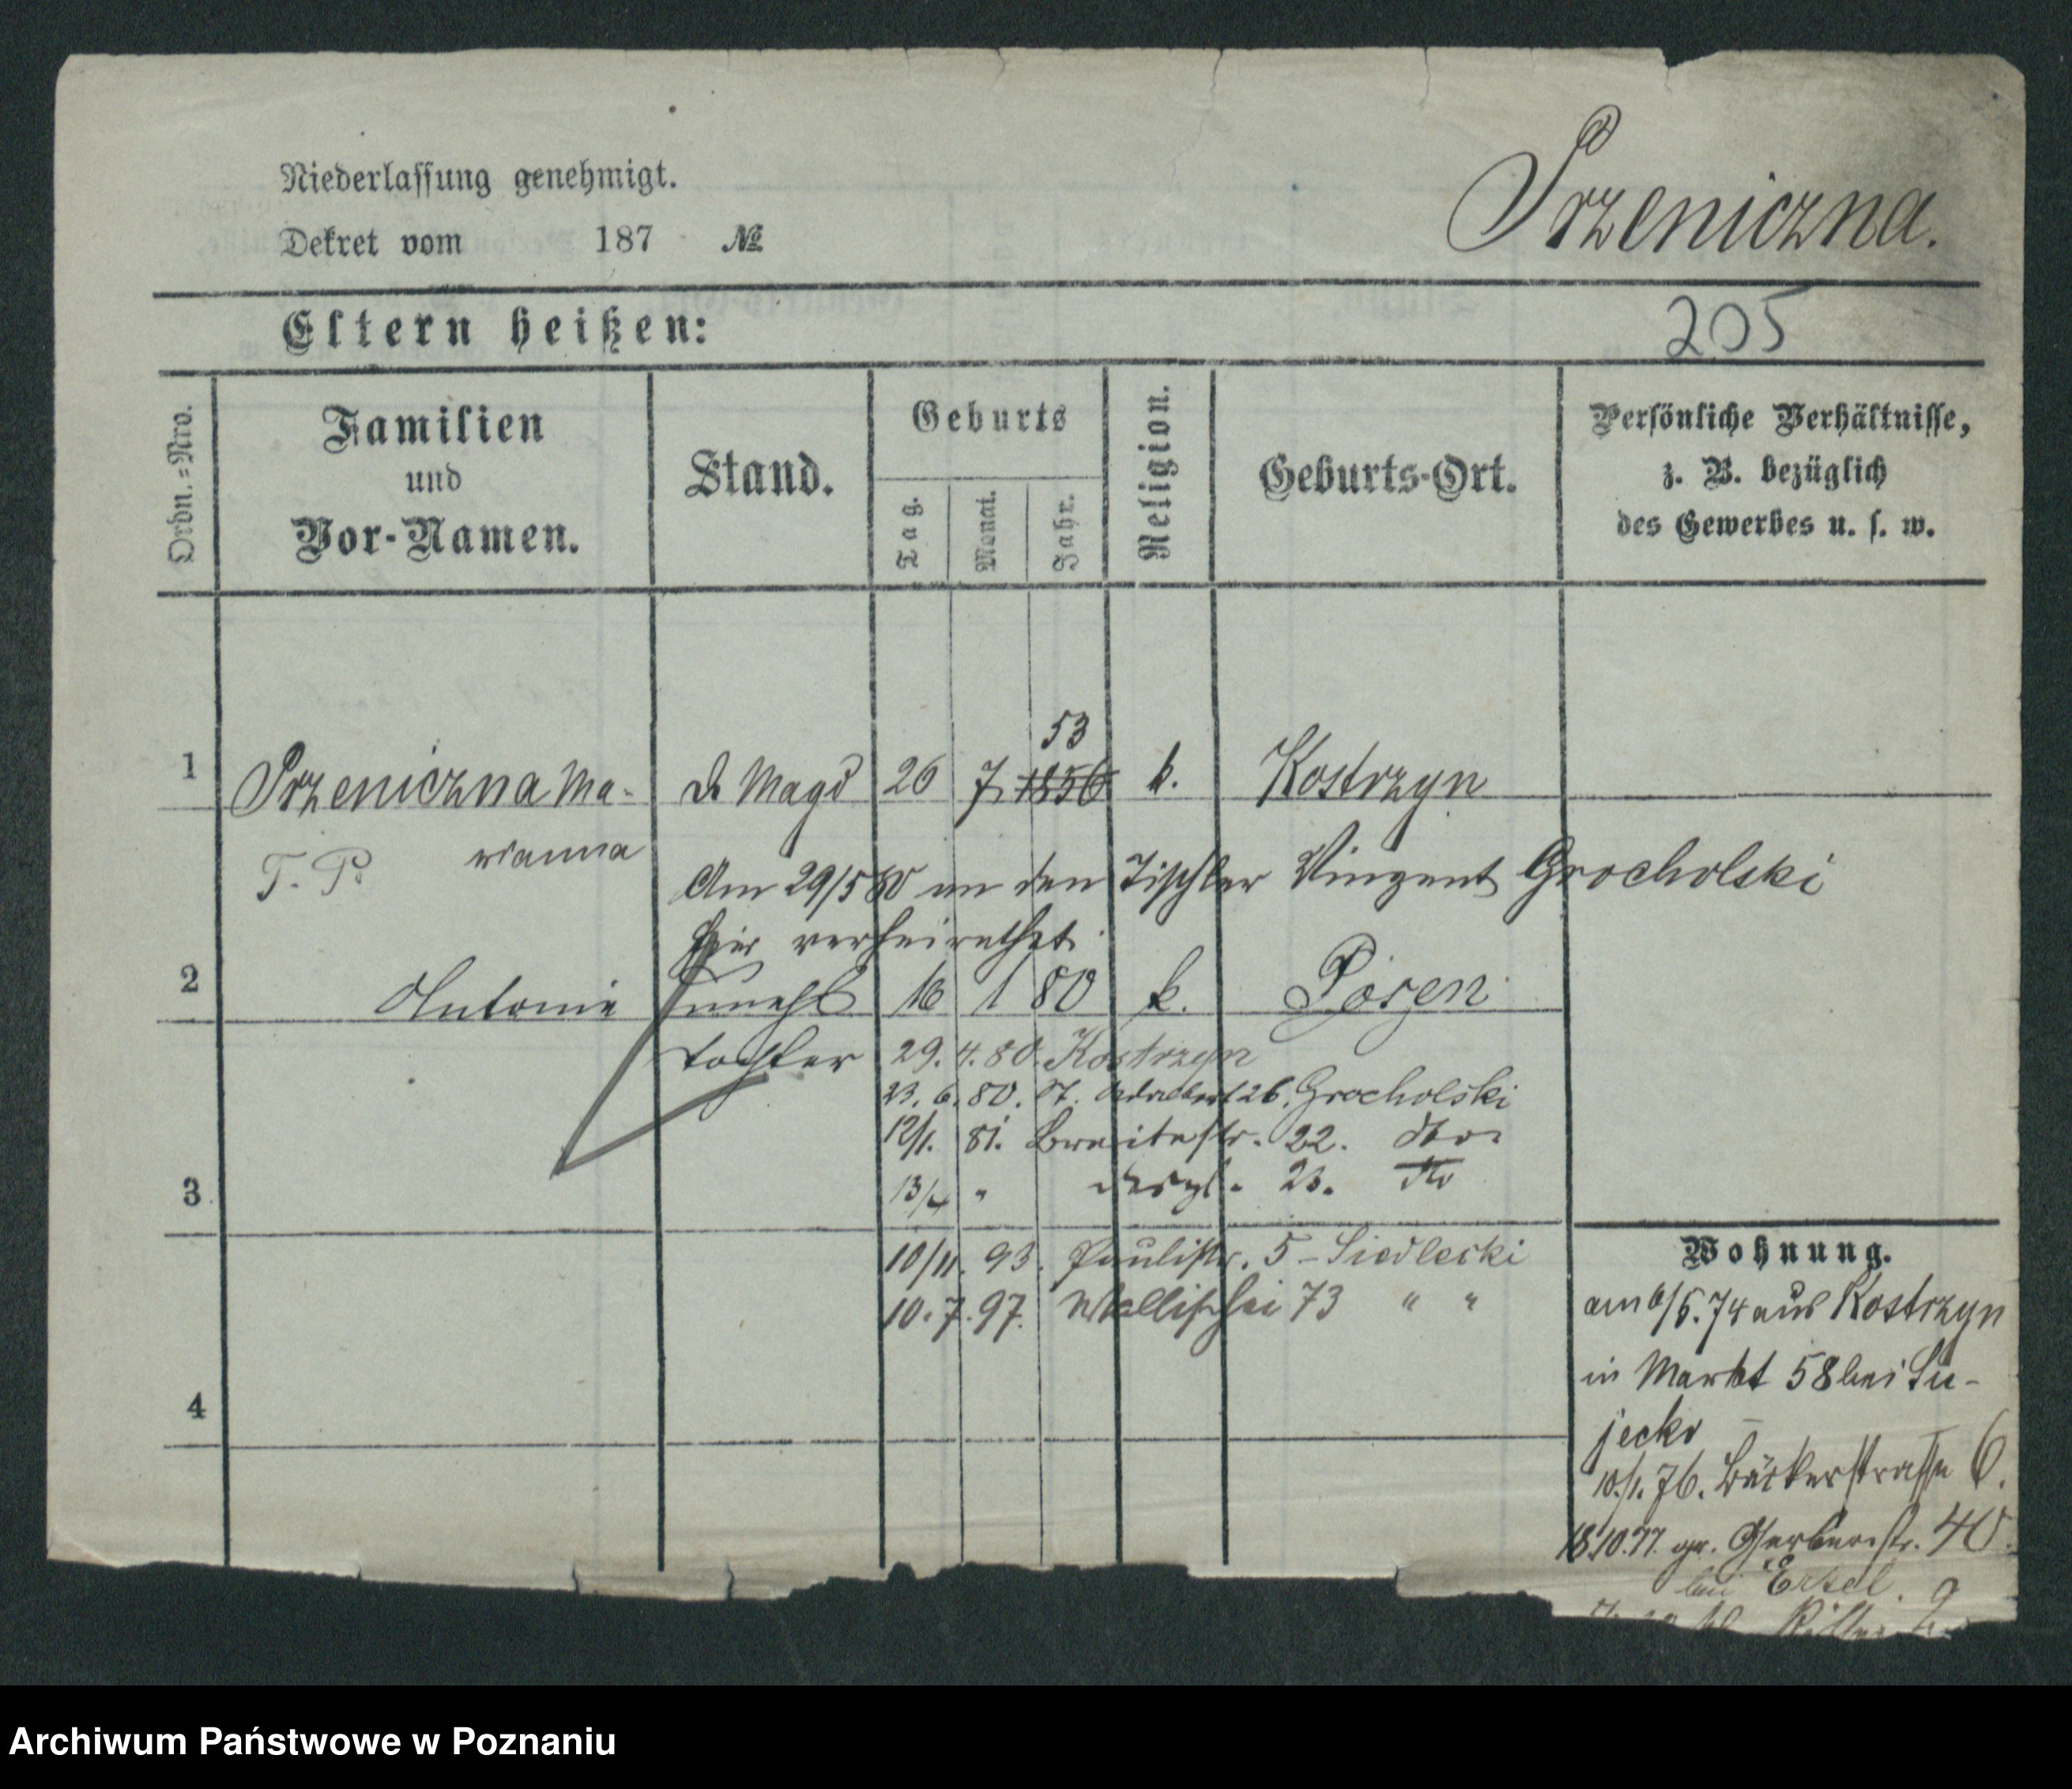 Niederlassung genehmigt.
Dekret vom 187 №
Przeniczna.
Eltern heißen:
205
Ordn.=Nro.
Familien
und
Vor-Namen.
Stand.
Geburts
Tag.
Monat.
Jahr.
Religion.
Geburts-Ort.
Persönliche Verhältnisse,
z. B. bezüglich
des Gewerbes u. s. w.
53
1 Przeniczna Ma- d Magd 26 7 1856 k. Kostrzyn
rianna
T. P.
Am 29/5 80 an den Tischler Vinzent Grocholski
hier verheirathet.
2 Antonie unehl 16 1 80 k. Posen
tochter 29. 4. 80. Kostrzyn
23. 6. 80. St. Adalbert 26. Grocholski
12/1. 81. Breitestr. 22. dto
3 13/4 " 23. dto
10/11. 93. Paulistr. 5 - Siedlecki
10. 7. 97. Wallischei 73 " "
4
Wohnung.
am 6/5. 74 aus Kostrzyn
in Markt 58 bei Su-
jecki
10/1. 76. Bäckerstrasse 6.
18.10.77. gr. Gerberstr. 40.
bei
Archiwum Państwowe w Poznaniu